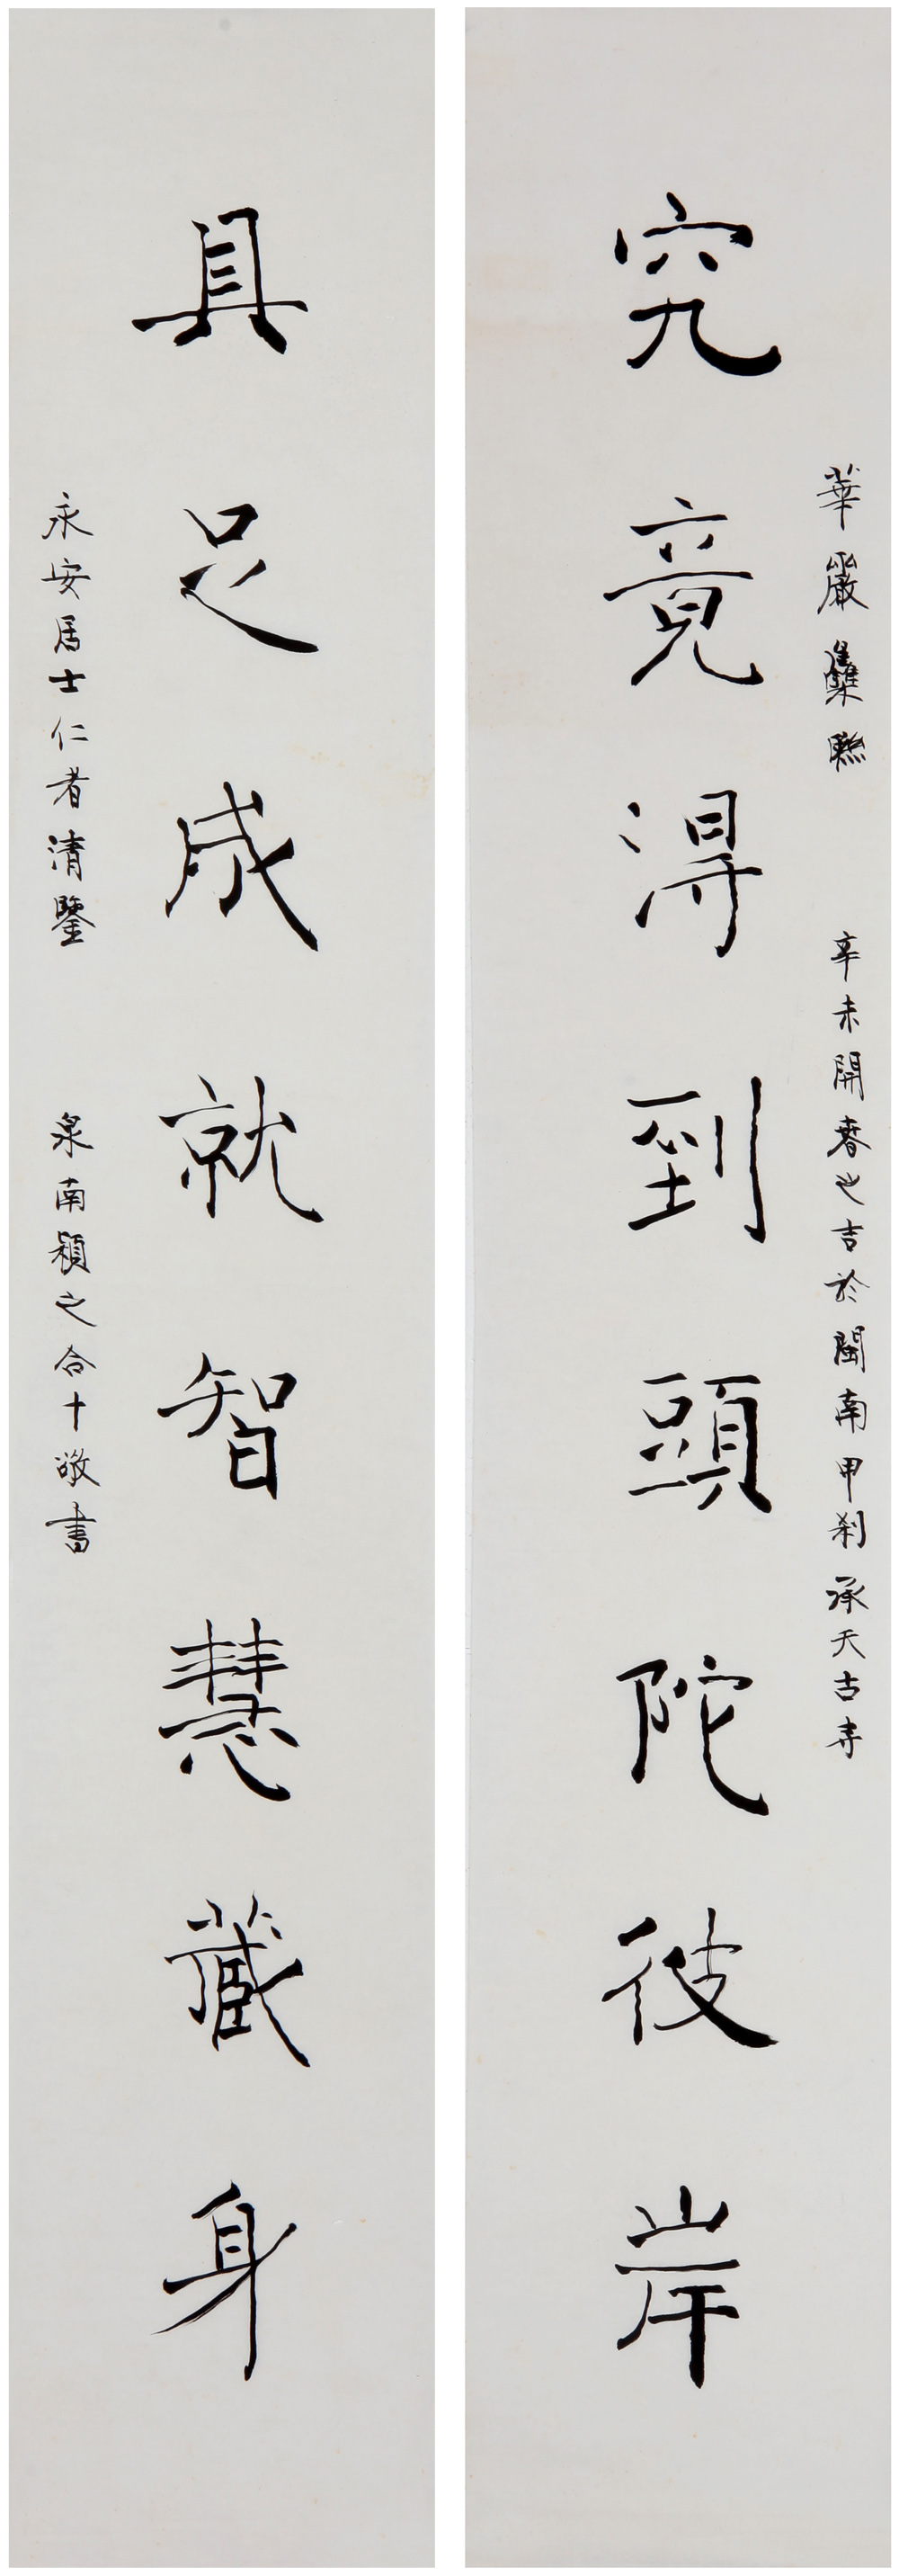 華嚴集聯 辛未開春之吉於閩南甲剎承天古寺
究竟得到頭陀彼岸
具足成就智慧藏身
永安居士仁者清鑒 泉南穎之合十敬書